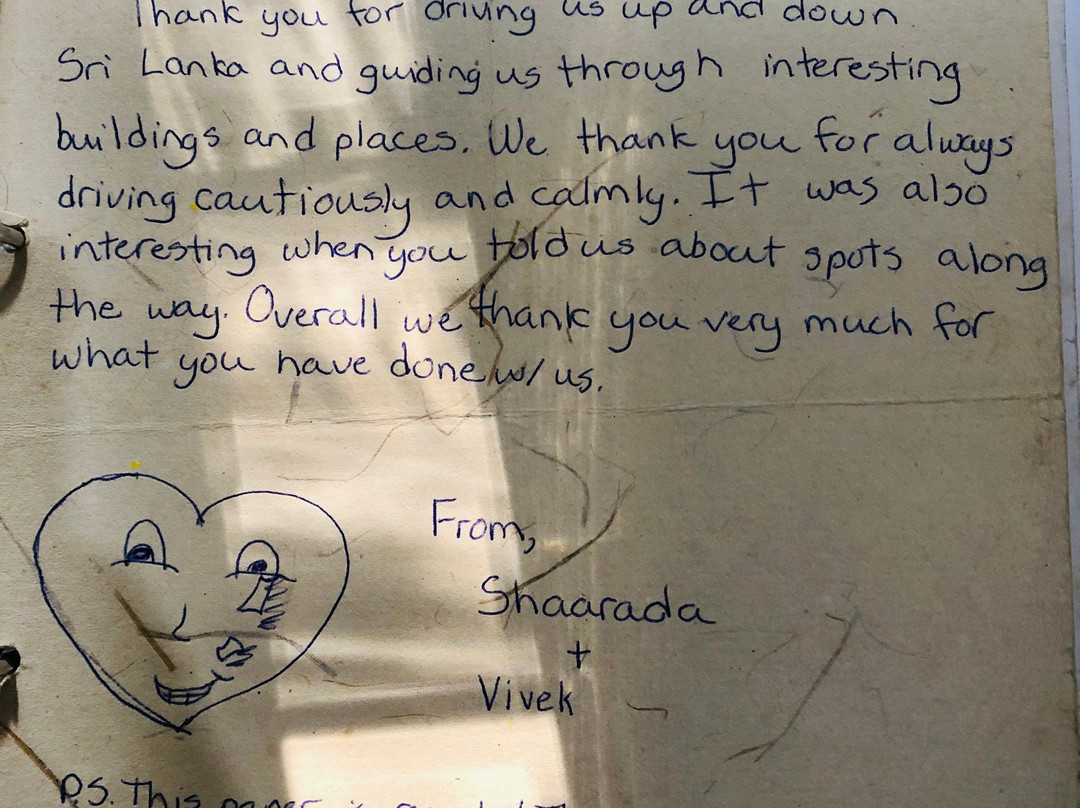 Thank you for driving us up and down
Sri Lanka and guiding us through interesting
buildings and places. We thank you for always
driving cautiously and calmly. It was also
interesting when you told us about spots along
the way. Overall we thank you very much for
what you have done w/ us.
From,
Shaarada
+
Vivek
P.S. This paper is